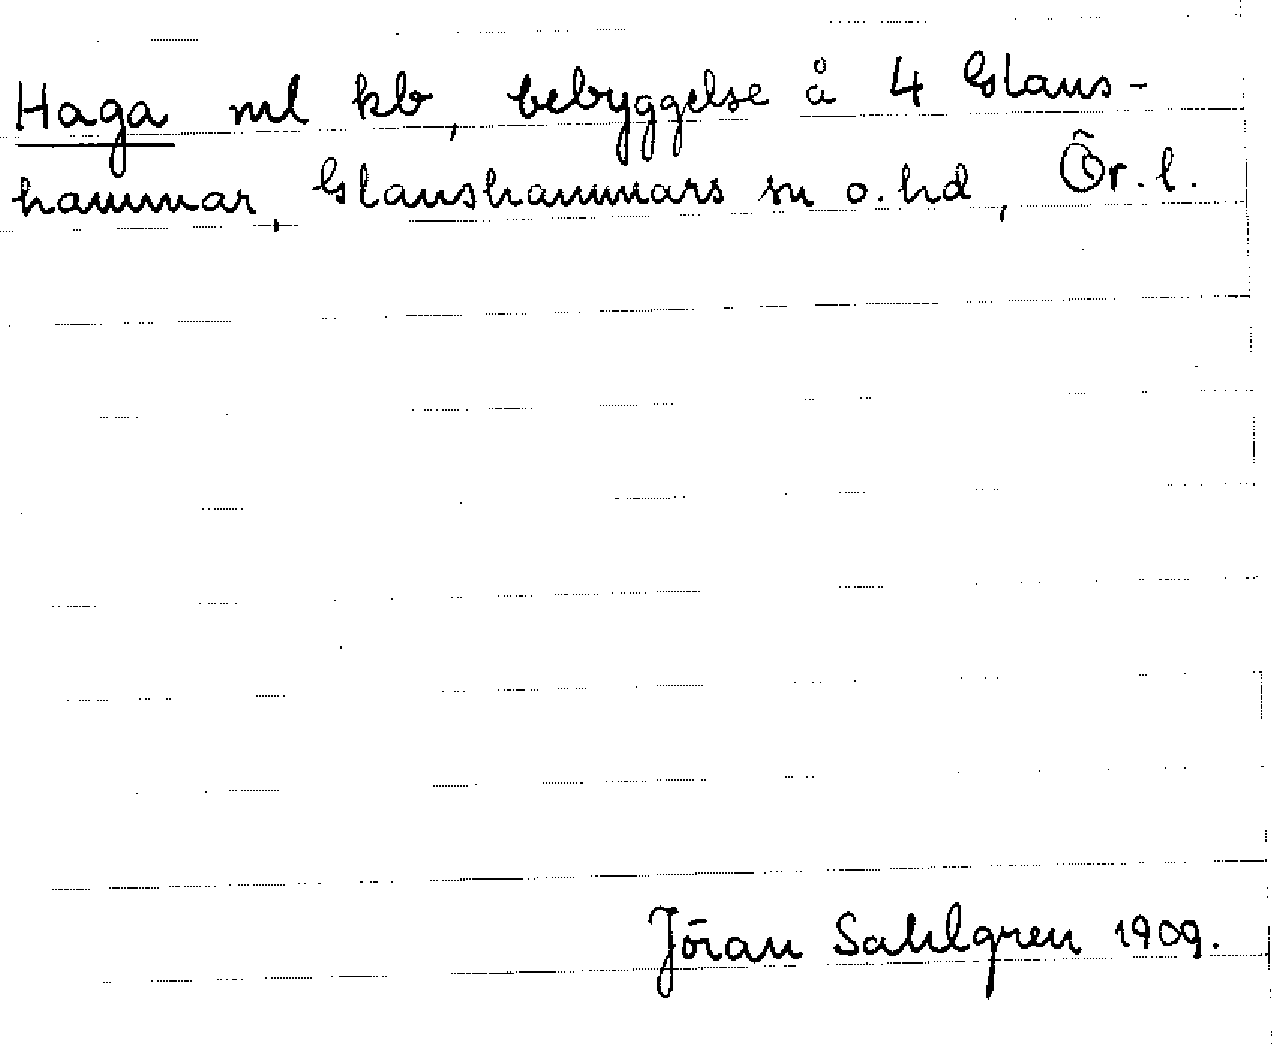 Haga ml kb, bebyggelse å 4 Glans-
hammar, Glanshammars sn o. hd, Ör. l.
Jöran Sahlgren 1909.